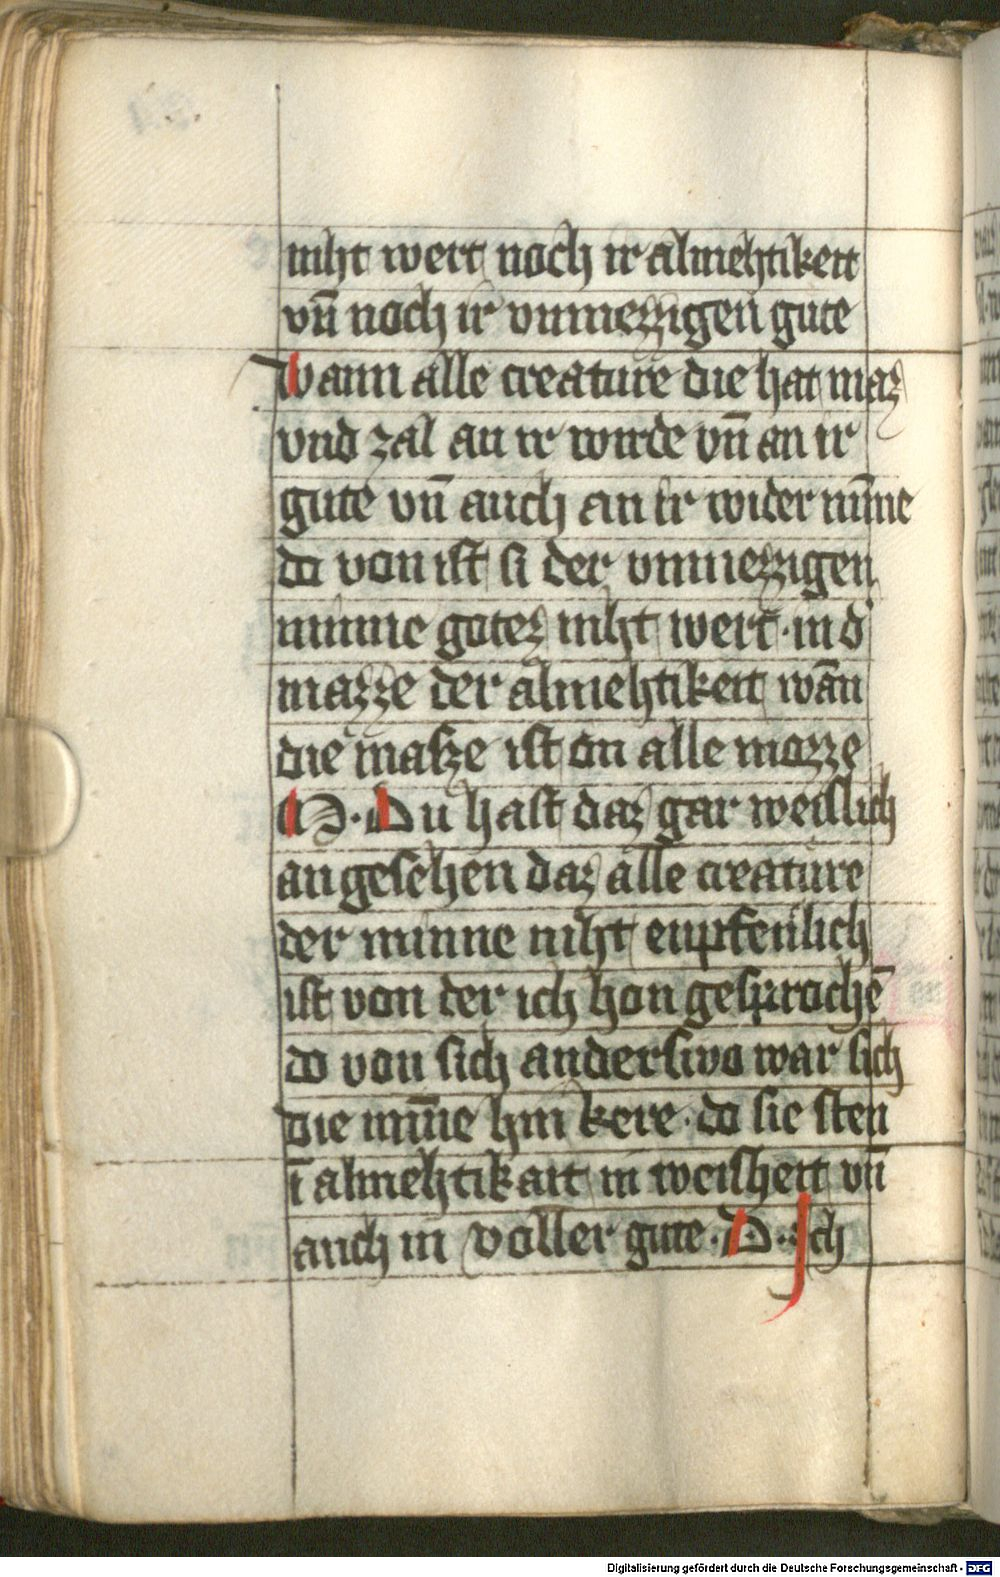 niht wert noch ir almehtikeit
vn̄ noch ir vnmezzigen gute
wann alle creature die hat maz
vnd zal an ir wirde vn̄ an ir
gute vn̄ auch an ir wider mīne
do von ist si der vnmezzigen
minne gotez niht wert · in d'
mazze der almehtikeit wān
die masze ist on alle mozze
M · Du hast daz gar weislich
angesehen daz alle creature
der minne niht enpfenlich
ist von der ich hon gesprochē
do von sich anderswo war sich
die mīne hin kere · do sie sten
ī almehtikait in weisheit vn̄
auch in voller gute · D · Ich
Digitalisierung gefördert durch die Deutsche Forschungsgemeinschaft - DFG